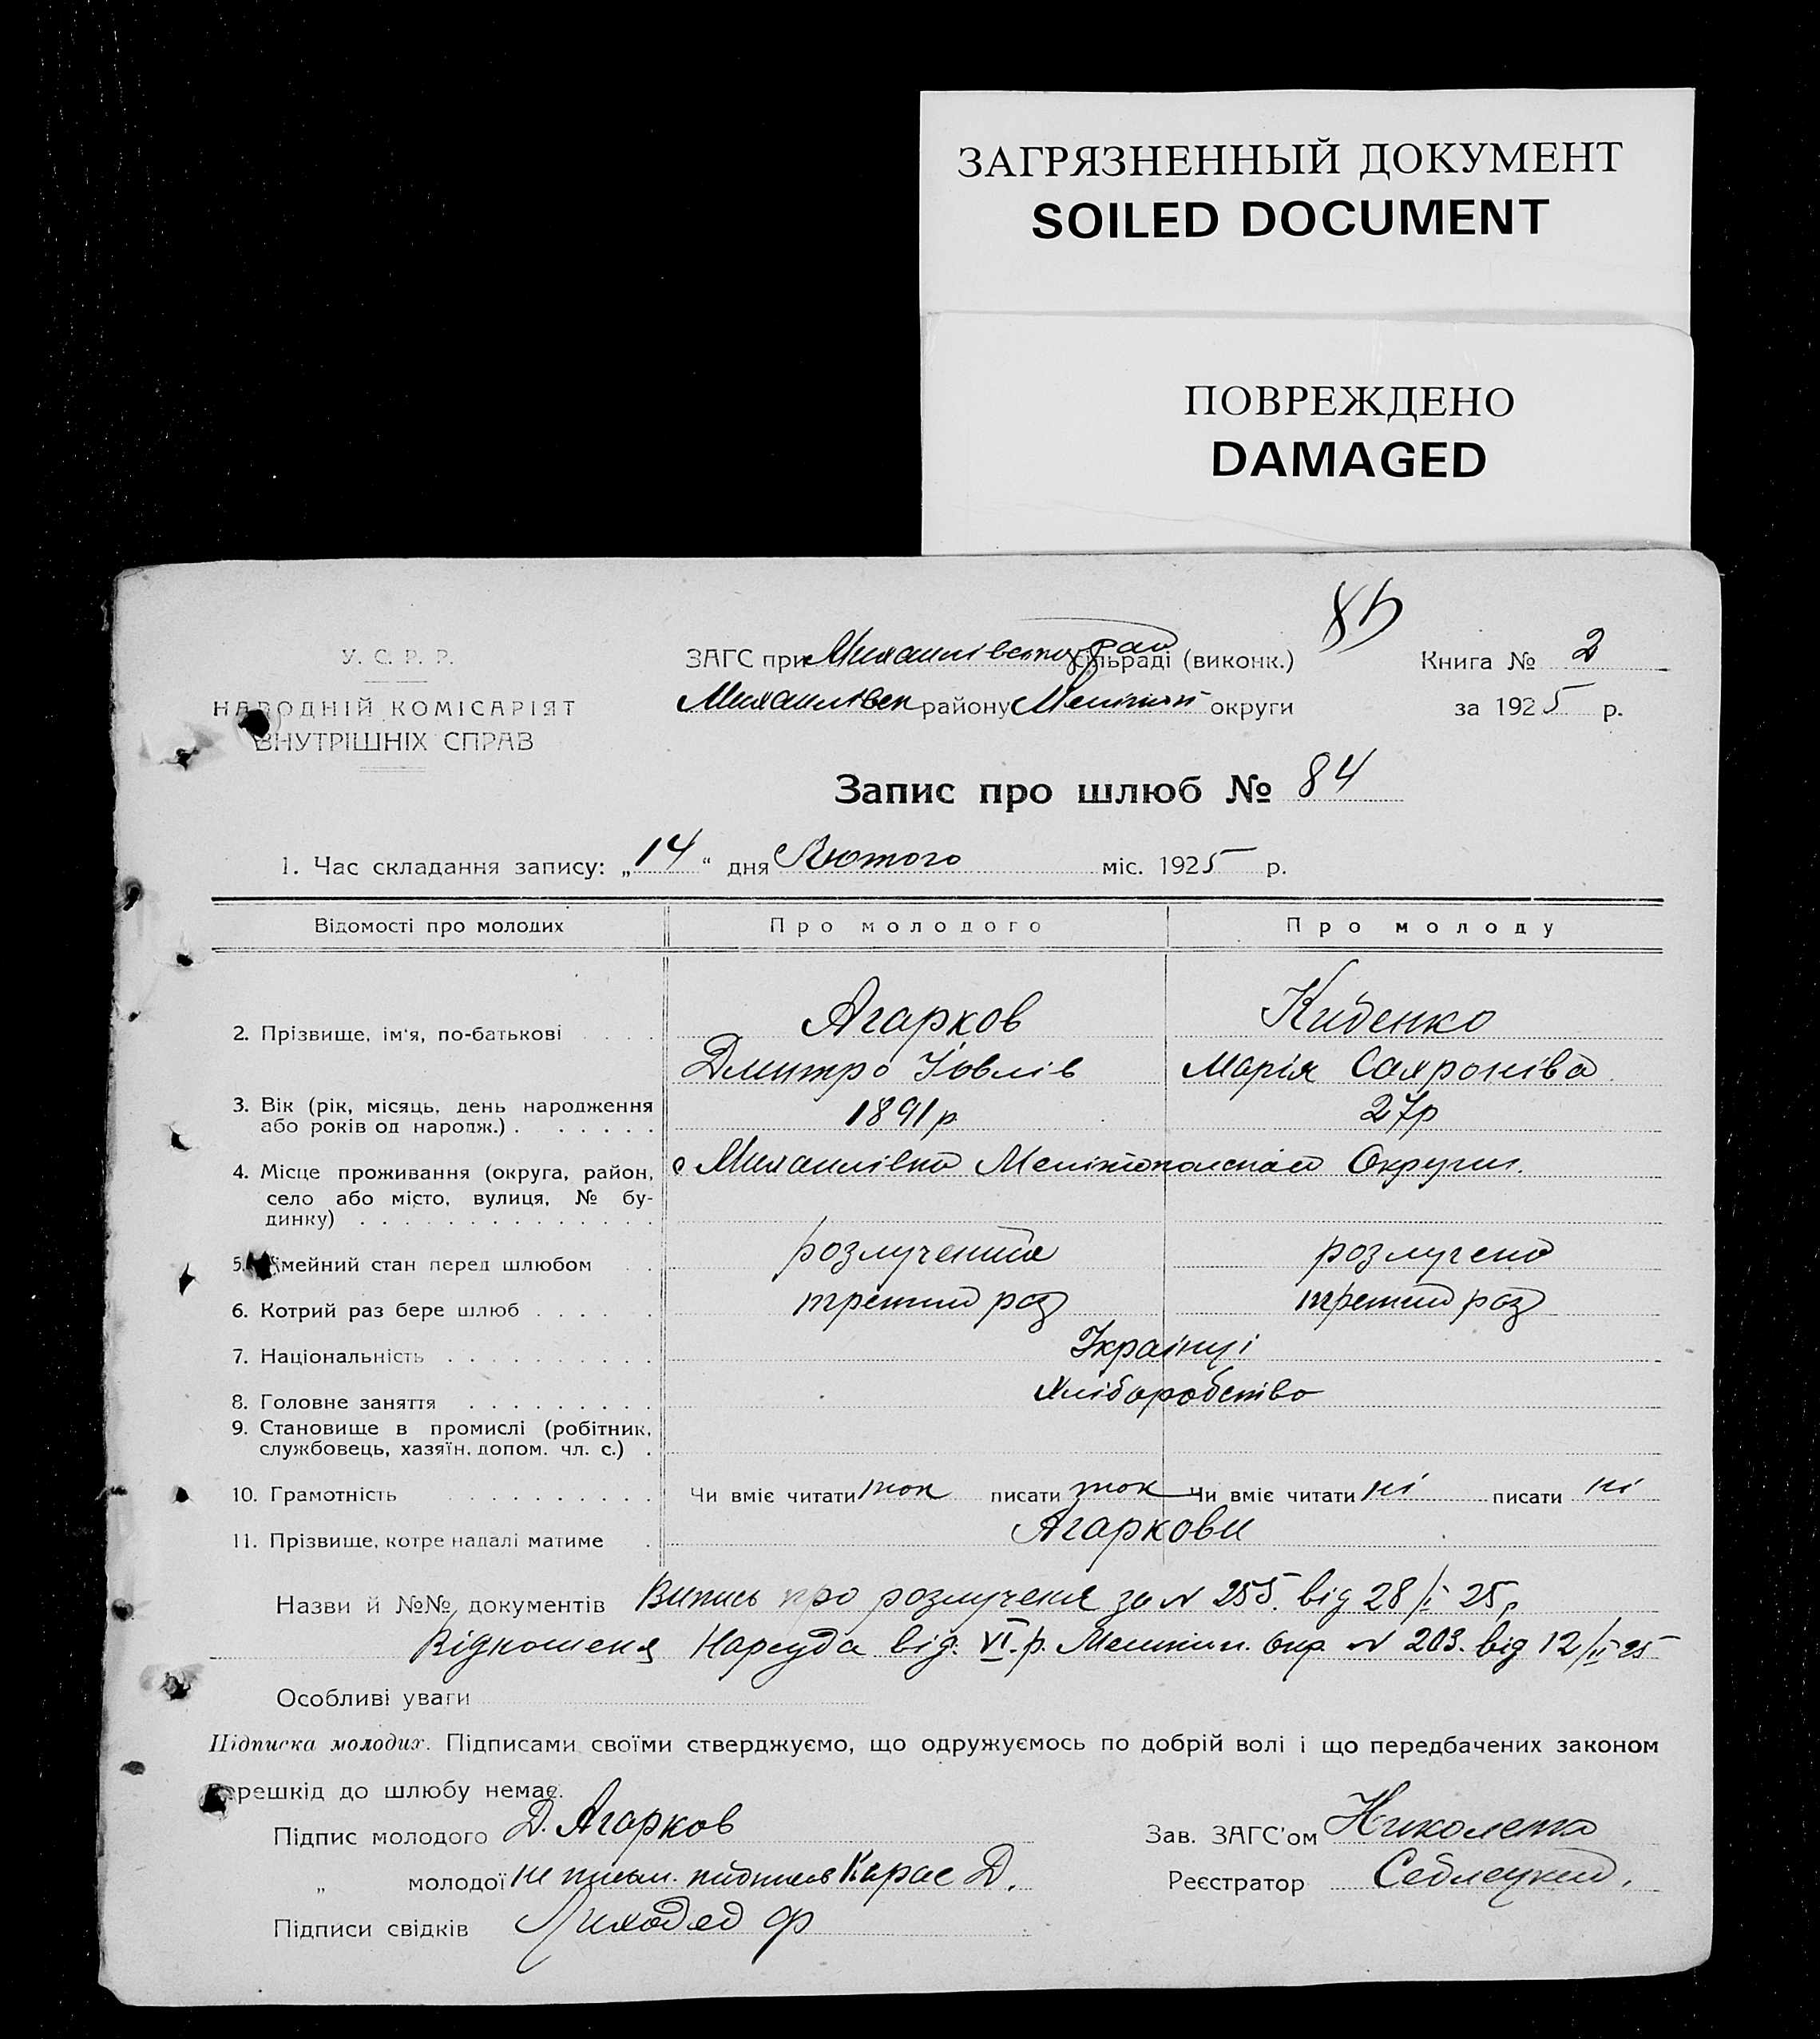 ЗАГРЯЗНЕННЫЙ ДОКУМЕНТ
SOILED DOCUMENT
ПОВРЕЖДЕНО
DAMAGED
85
У. С. Р. Р.
НАРОДНІЙ КОМІСАРІЯТ
ВНУТРІШНІХ СПРАВ
ЗАГС при сільраді (виконк.)
Михаилівск району Меліт округи
Книга № 2
за 1925 р.
Запис про шлюб № 84
1. Час складання запису: „14“ дня Лютого міс. 1925 р.
Відомості про молодих Про молодого Про молоду
2. Прізвище, ім'я, по-батькові Агарков Кибенко
Дмитро Іовлів Марія Сахроніва
3. Вік (рік, місяць, день народження 1891 р 27р
або років од нарощж.)
4. Місце проживання (округа, район, с Михаилівка Мелітопольскои Округи.
село або місто, вулиця, № бу-
динку)
5. імейний стан перед шлюбом розлучений розлучена
6. Котрий раз бере шлюб третий раз третий раз
7. Національність Українці
8. Головне заняття Хліборобство
9. Становище в промислі (робітник,
службовець, хазяїн, допом. чл. с.)
10. Грамотність Чи вміє читати так писати так Чи вміє читати ні писати ні
11. Прізвище, котре надалі матиме Агаркови
Назви й №№ документів Випись про розлученя за № 255. від 28/I 25р
Відношеня Нарсуда від. VI. р. Меліт. Окр № 203. від 12/II 25
Особливі уваги
Підписка молодих. Підписами своїми стверджуємо, що одружуємось по добрій волі і що передбачених законом
перешкід до шлюбу немає.
Підпис молодого Д. Агарков
Зав. ЗАГС'ом
„ молодої не письм. підписв Карас Д.
Реєстратор
Підписи свідків Лиходед Ф